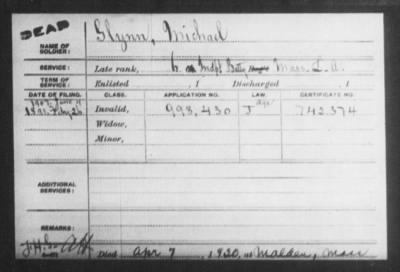 DEAD
Glynn, Michael
NAME OF SOLDIER:
SERVICE: Late rank, 6 Indpt Batty Mass. L. A.
TERM OF SERVICE: Enlisted , 1 Discharged , 1
DATE OF FILING. CLASS. APPLICATION NO. LAW. CERTIFICATE NO.
1907. June 4 Age
1891. Feby 26 Invalid, 998,430 J 742,374
Widow,
Minor,
ADDITIONAL SERVICES:
REMARKS:
Died Apr 7, 1920, at Malden, Mass